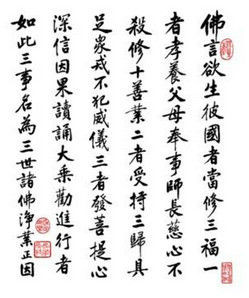 佛言欲生彼國者當修三福一
者孝養父母奉事師長慈心不
殺修十善業二者受持三歸具
足眾戒不犯威儀三者發菩提心
深信因果讀誦大乘勸進行者
如此三事名為三世諸佛淨業正因